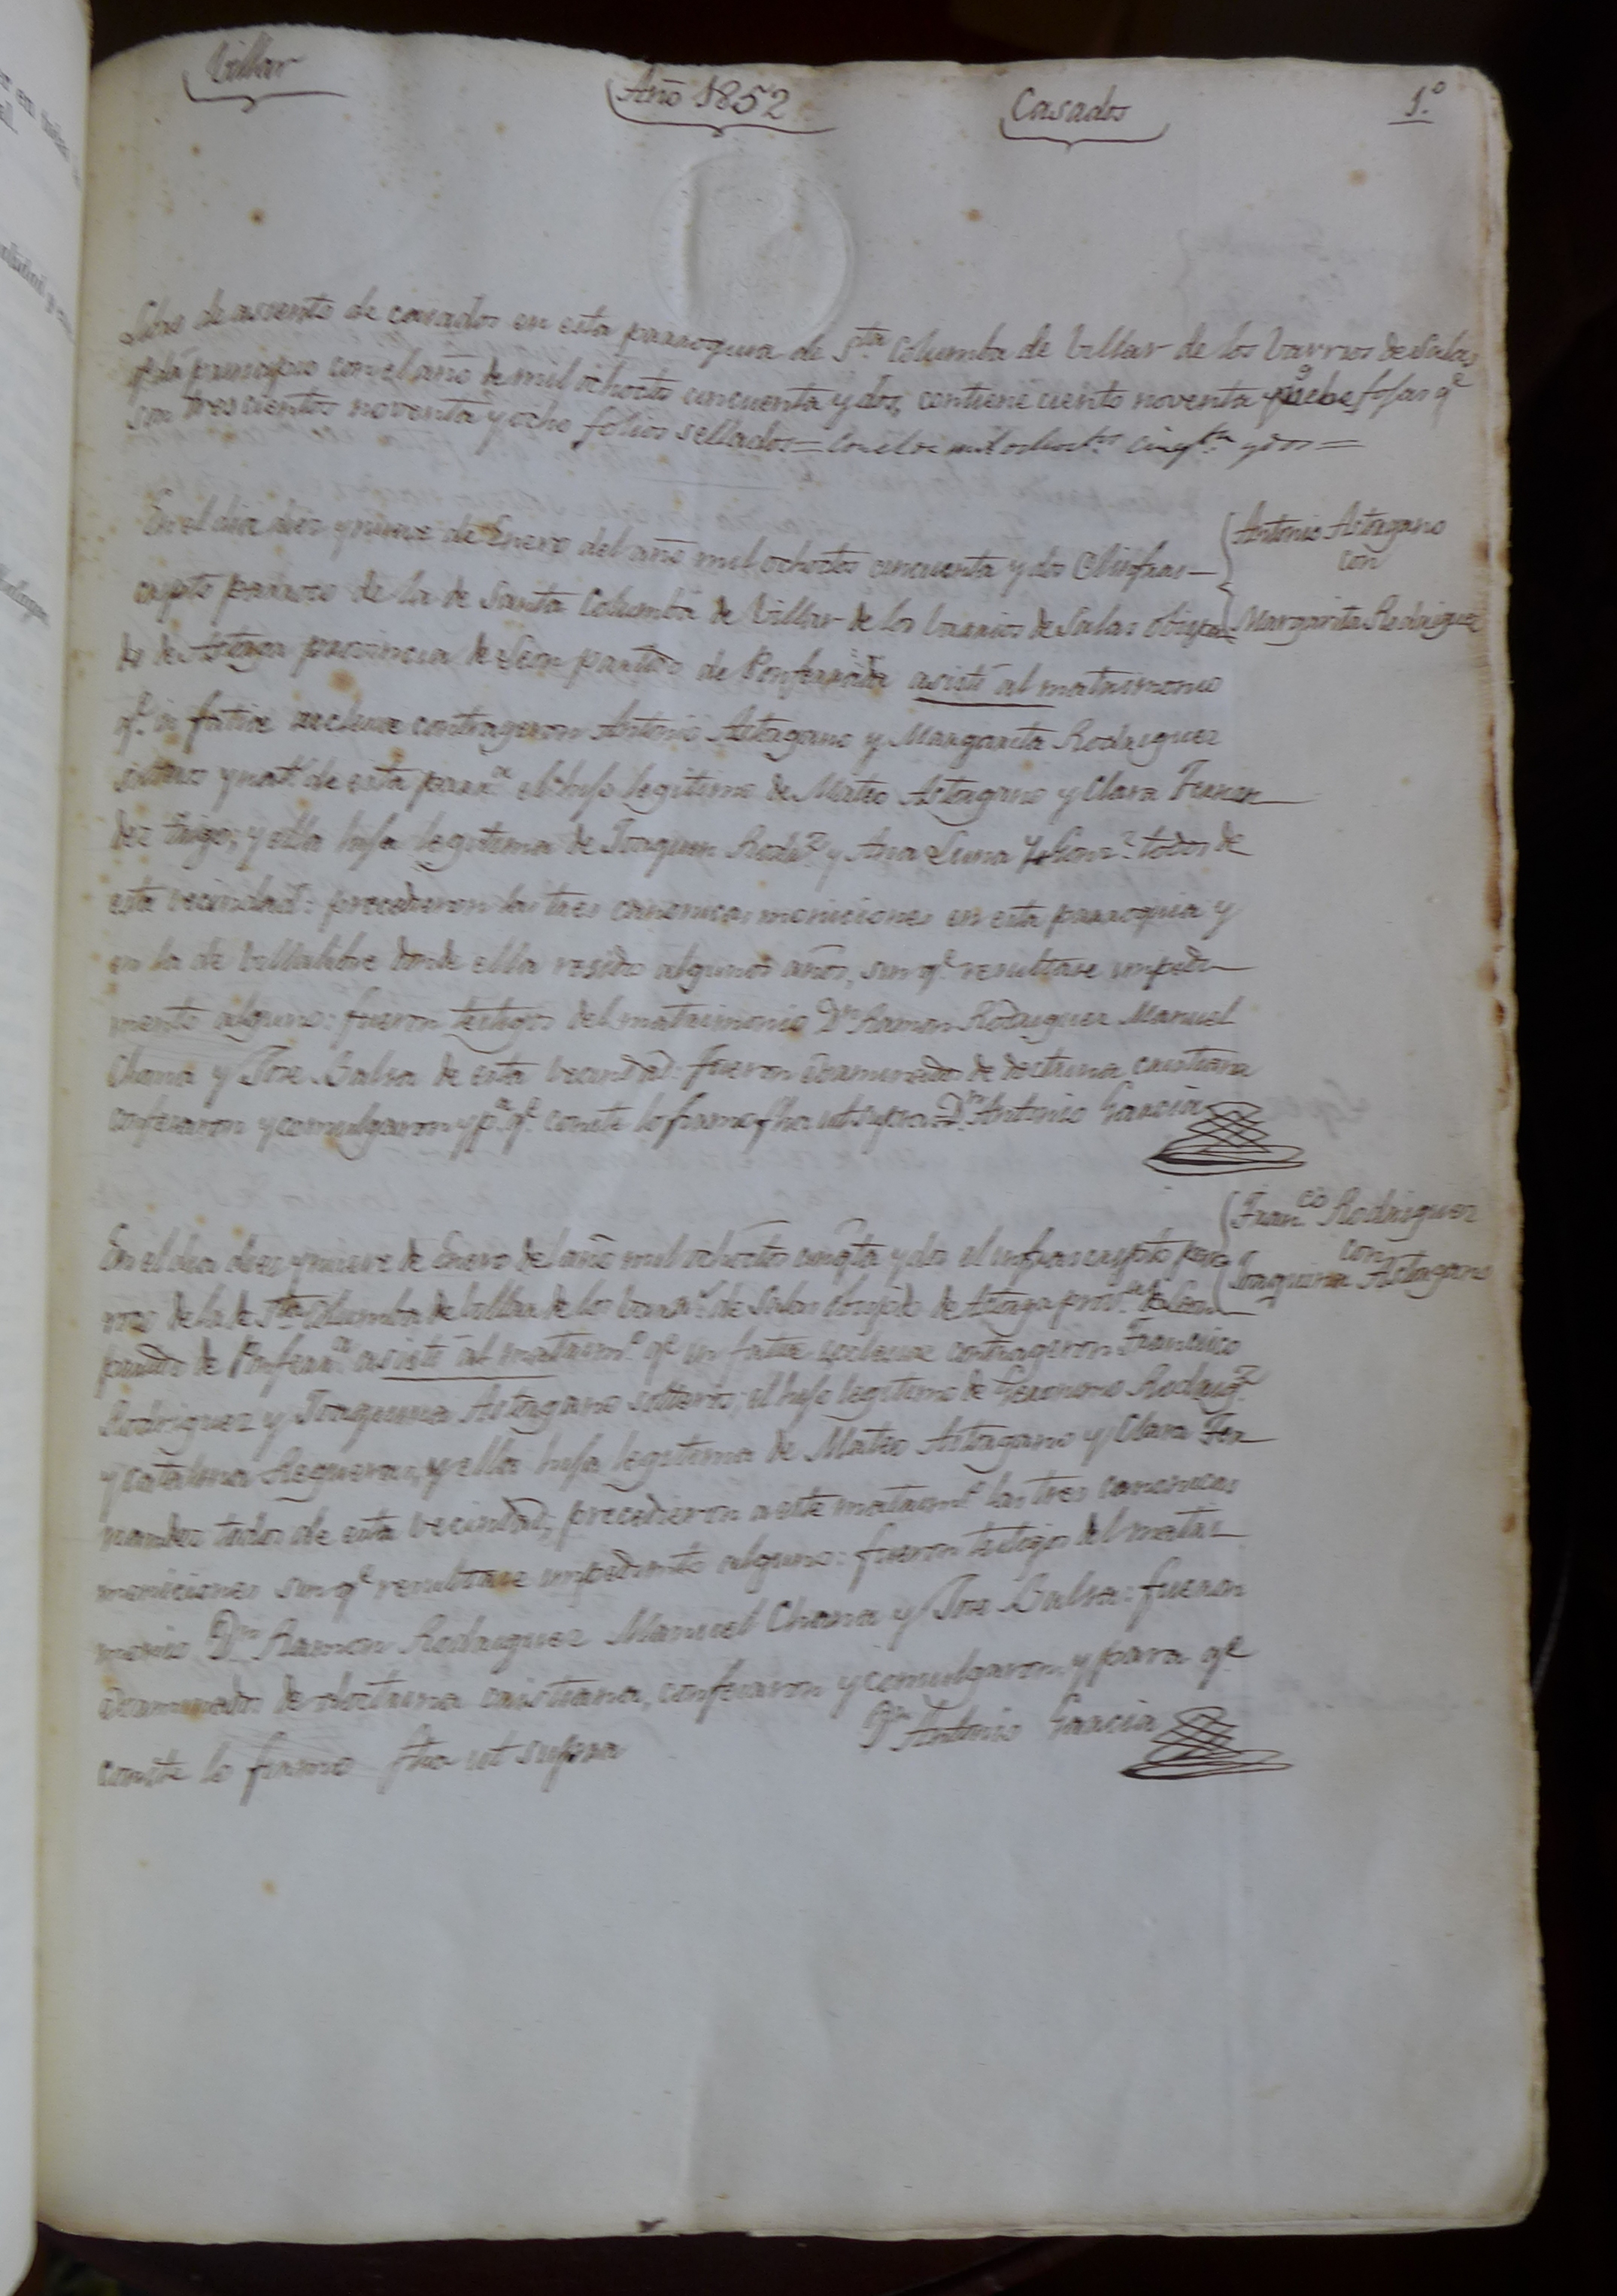 Villar
Año 1852
Casados
1.º
Libro de asiento de casados en esta parroquia de Sta Columba de Villar de los Varrios de Salas
q.e da principio con el año de mil ochocto cincuenta y dos, contiene ciento noventa y nuebe fojas q.e
son tres cientos noventa y ocho folios sellados =
Antonio Astorgano
con
Margarita Rodriguez
En el dia diez y nueve de Enero del año mil ochoctos cincuenta y dos El infras-
cripto parroco de la de Santa Columba de Villar de los barrios de Salas obispa-
do de Astorga provincia de Leon partido de Ponferrada asistí al matrimonio
q.e in fatie ecclesiae contrageron Antonio Astorgano y Margarita Rodriguez
solteros y nat.s de esta parr.a el hijo legitimo de Mateo Astorgano y Clara Fernan
dez Trigo; y ella hija legitima de Joaquin Rodr.z y Ana Luna todos de
esta vecindad: precedieron las tres canonicas moniciones en esta parroquia y
en la de Villalibre donde ella residio algunos años, sin q.e resultase impedi-
mento alguno: fueron testigos del matrimonio Dn Ramon Rodriguez Manuel
Chana y Jose Balsa de esta vecindad: fueron examinados de doctrina cristiana
confesaron y comulgaron y p.a q.e conste lo firmo fha ut supra. Dn Antonio Garcia
Fran.co Rodriguez
con
Joaquina Astorgano
En el dia diez y nueve de Enero del año mil ochoctos cinqta y dos el infrascripto par-
roco de la de Sta Columba de Villar de los barr.s de Salas obispdo de Astorga prov.a de Leon
partido de Ponferr.a asistí al matrim.o q.e in fatie ecclesiae contrageron Francisco
Rodriguez y Joaquina Astorgano solteros; el hijo legitimo de Geronimo Rodrig.z
y Catalina Regueras, y ella hija legitima de Mateo Astorgano y Clara Fer
nandez todos de esta vecindad; precedieron a este matrim.o las tres canonicas
moniciones sin q.e resultase impedimto alguno: fueron testigos del matri-
monio Dn Ramon Rodriguez Manuel Chana y Jose Balsa: fueron
examinados de doctrina cristiana, confesaron y comulgaron y para q.e
conste lo firmo fha ut supra
Dn Antonio Garcia